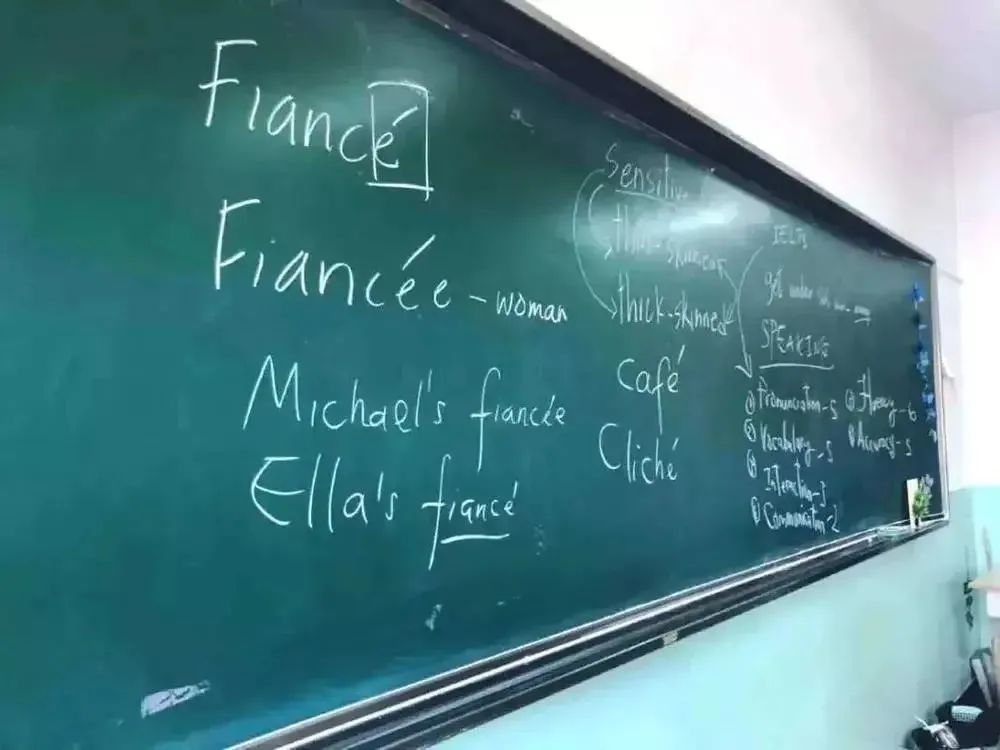 Fiancé
Fiancée - woman
Michael's fiancée
Ella's fiancé
Sensitive
thin-skinned
thick-skinned
Café
Cliché
IELTS
get under
SPEAKING
① Pronunciation-5
② Vocabulary-5
Interaction-
Communication-2
Fluency-6
Accuracy-5